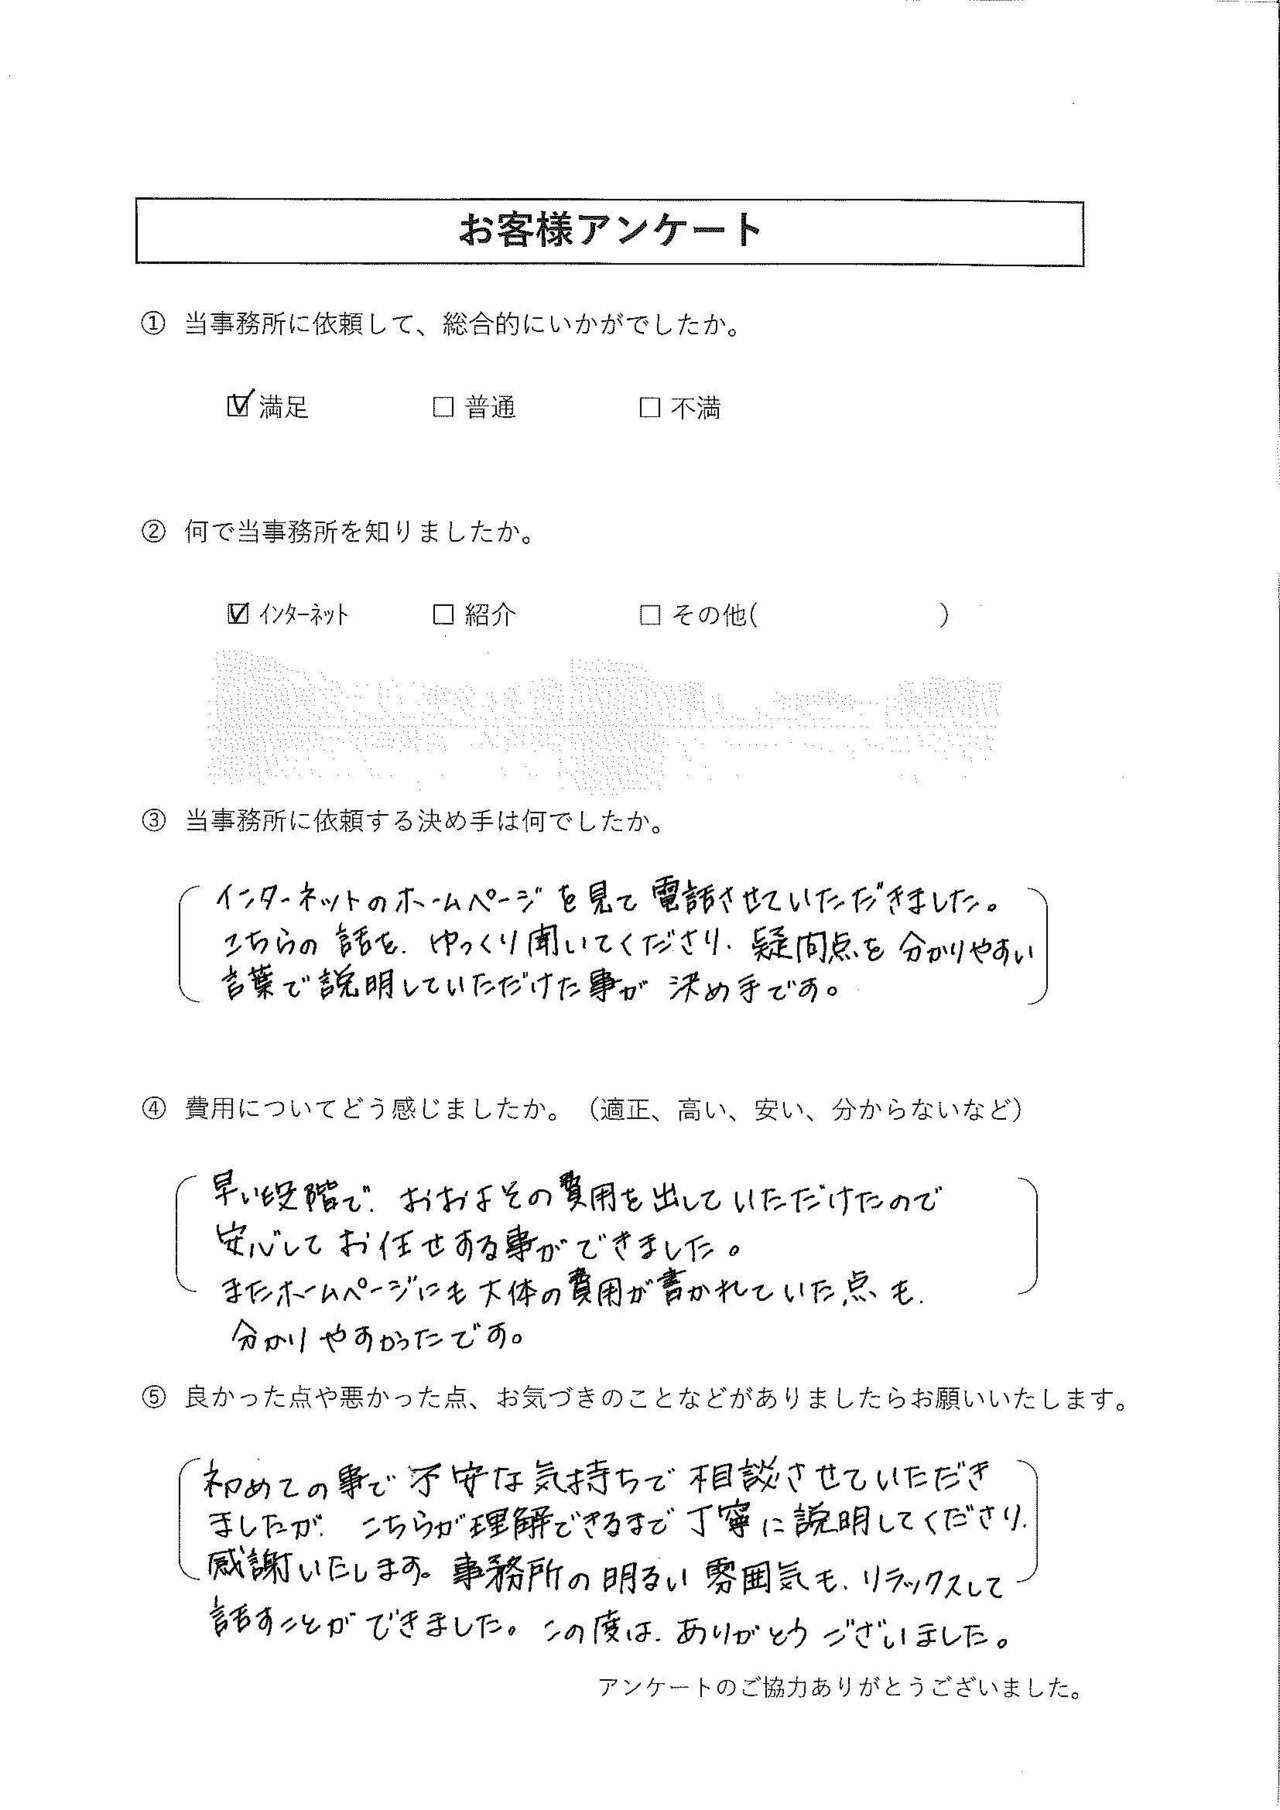 お客様アンケート
① 当事務所に依頼して、総合的にいかがでしたか。
☑ 満足 □ 普通 □ 不満
② 何で当事務所を知りましたか。
☑ インターネット □ 紹介 □ その他( )
③ 当事務所に依頼する決め手は何でしたか。
インターネットのホームページを見て電話させていただきました。
こちらの話を、ゆっくり聞いてくださり、疑問点を分かりやすい
言葉で説明していただけた事が決め手です。
④ 費用についてどう感じましたか。（適正、高い、安い、分からないなど）
早い段階で、おおよその費用を出していただけたので
安心してお任せする事ができました。
またホームページにも大体の費用が書かれていた点も、
分かりやすかったです。
⑤ 良かった点や悪かった点、お気づきのことなどがありましたらお願いいたします。
初めての事で不安な気持ちで相談させていただき
ましたが、こちらが理解できるまで丁寧に説明してくださり、
感謝いたします。事務所の明るい雰囲気も、リラックスして
話すことができました。この度は、ありがとうございました。
アンケートのご協力ありがとうございました。